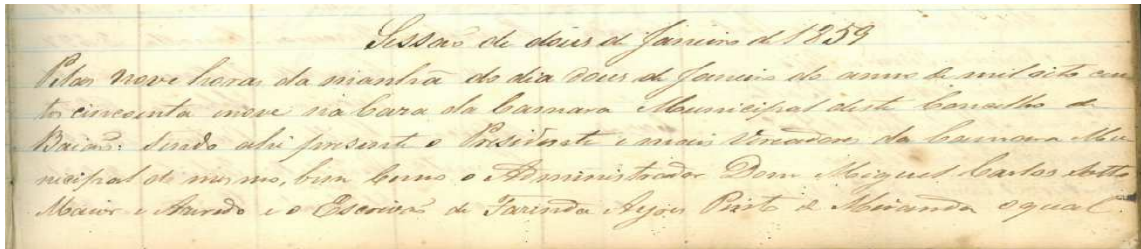 Sessaõ de dous de Janeiro de 1859
Pelas nove horas da manhã do dia dous de Janeiro do anno de mil oito cen
tos cincoenta e nove na Caza da Camara Municipal deste Concelho de
Baiaõ: sendo ahi presente o Presidente e mais Vereadores da Camara Mu
nicipal do mesmo, bem como o Administrador Dom Miguel Carlos Sotto
Maior e Azevedo e o Escrivaõ de Fazenda Ayres Pinto de Miranda o qual